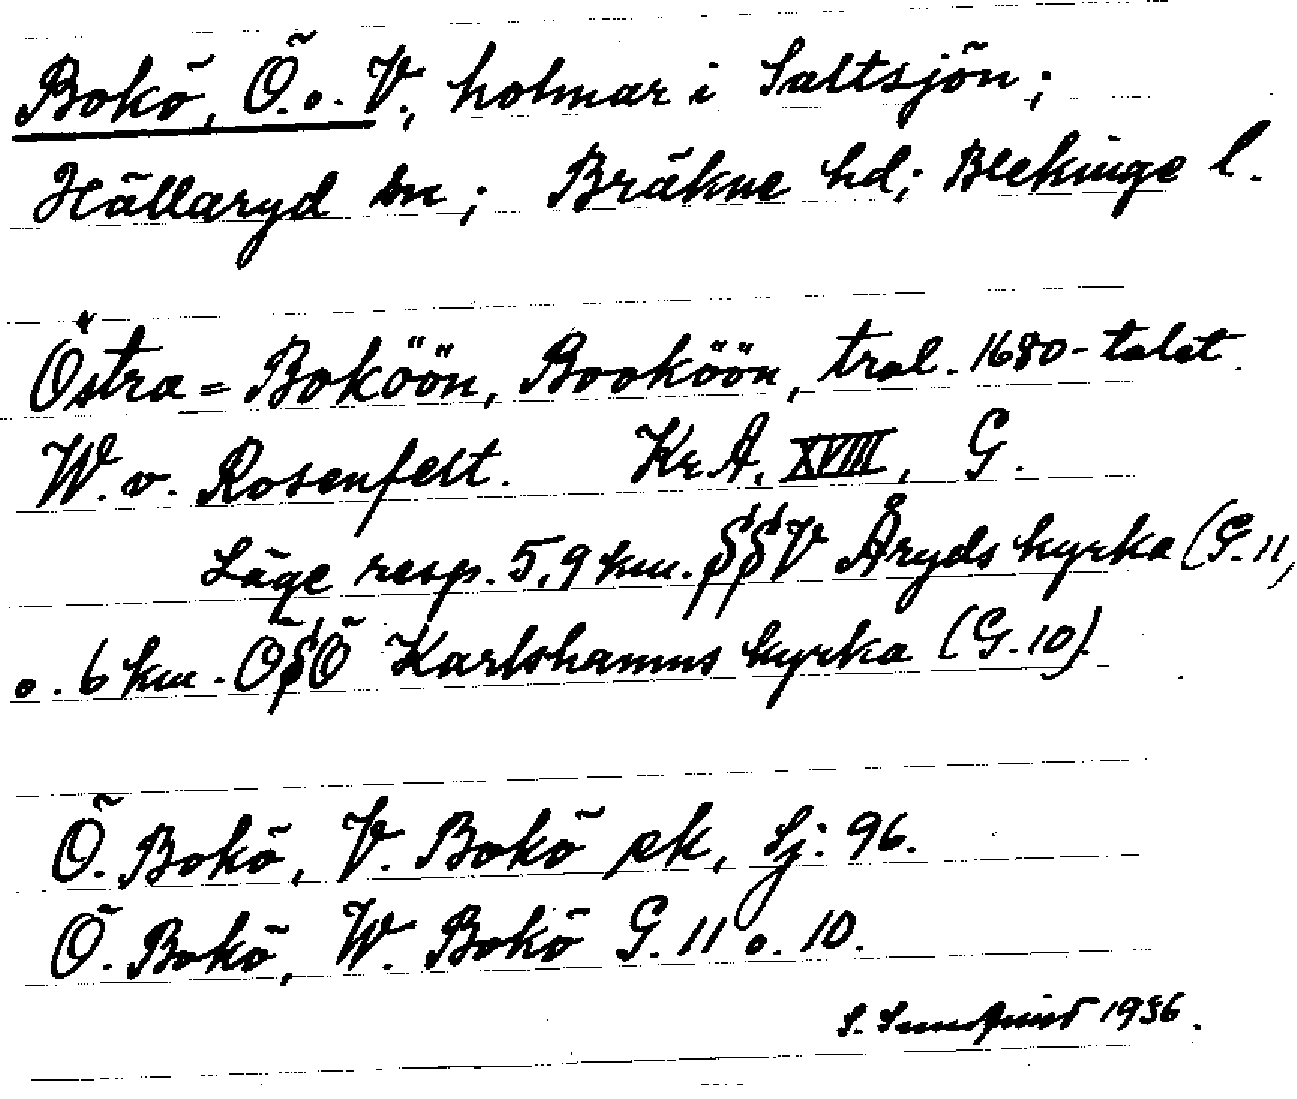 Bokö, Ö. o. V., holmar i Saltsjön;
Hällaryd sn; Bräkne hd; Blekinge l.
Östra= Boköön, Booköön, trol. 1680-talet.
W. v. Rosenfelt. KrA, XVIII, G.
Läge resp. 5,9 km. SSV Åryds kyrka (G. 11)
o. 6 km. ÖSÖ Karlshamns kyrka (G. 10).
Ö. Bokö, V. Bokö ek, Sj: 96.
Ö. Bokö, W. Bokö G. 11 o. 10.
S. Sundquist 1936.